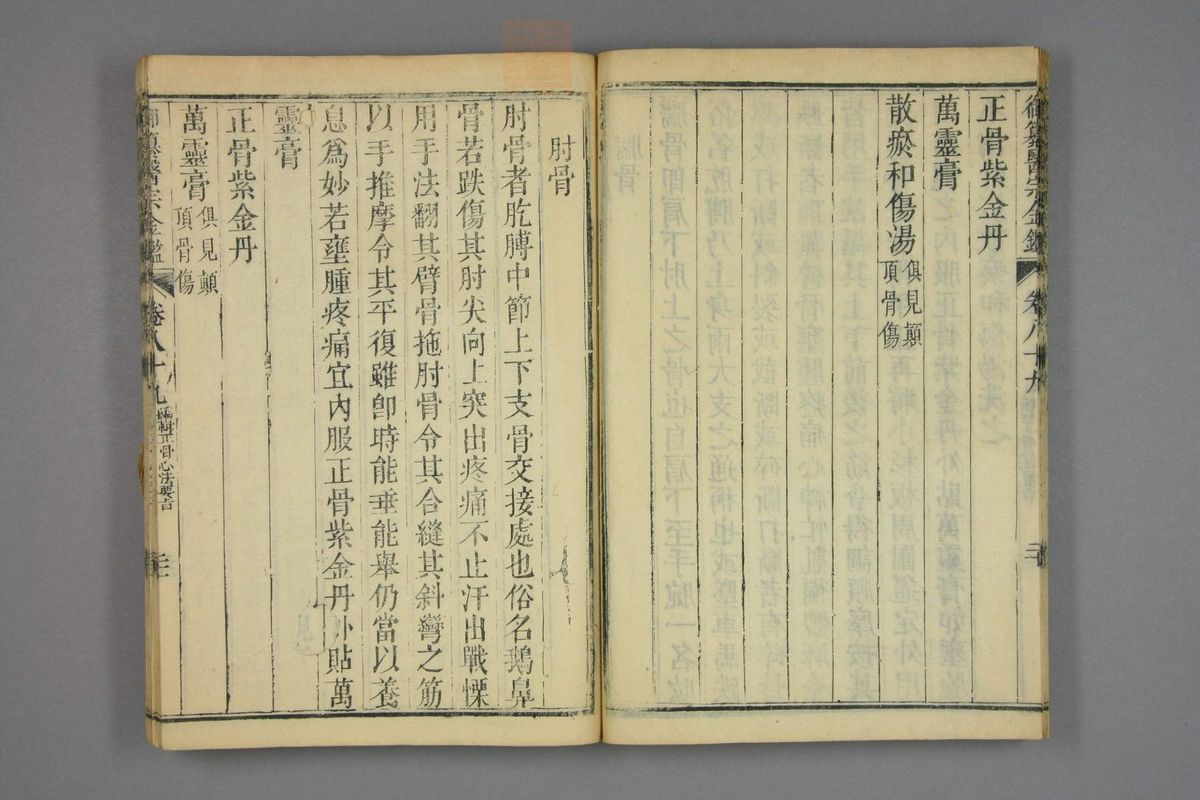 御纂醫宗金鑑 卷八十九
正骨紫金丹
萬靈膏
散瘀和傷湯 俱見顛
頂骨傷
肘骨
肘骨者胳膊中節上下支骨交接處也俗名鵝鼻
骨若跌傷其肘尖向上突出疼痛不止汗出戰慄
用手法翻其臂骨拖肘骨令其合縫其斜彎之筋
以手推摩令其平復雖卽時能垂能舉仍當以養
息爲妙若壅腫疼痛宜內服正骨紫金丹外貼萬
靈膏
正骨紫金丹
萬靈膏 俱見顛
頂骨傷
御纂醫宗金鑑 卷八十九 編輯正骨心法要旨